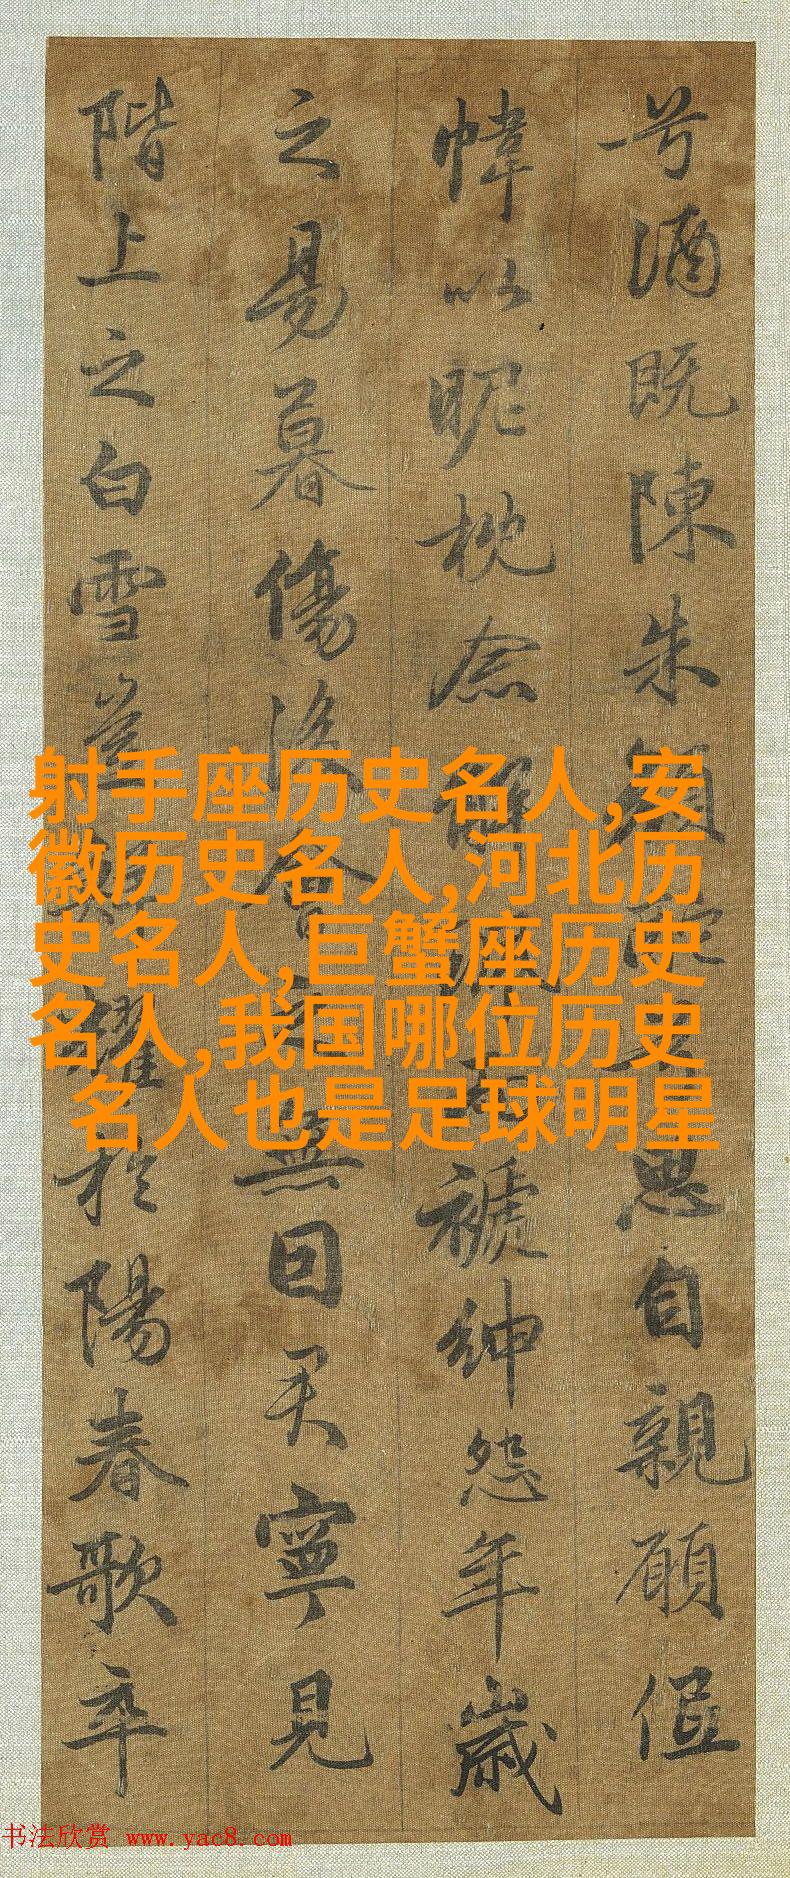 兮酒既陳朱顏酡兮思自親願低
幃以昵枕念解褫紳怨年歲
之易暮傷後會之無因君寧見
階上之白雪豈鮮耀於陽春歌卒
射手座历史名人,安
徽历史名人,河北历
史名人,巨蟹座历史
名人,我国哪位历史
名人也是足球明星
书法欣赏 www.yac8.com